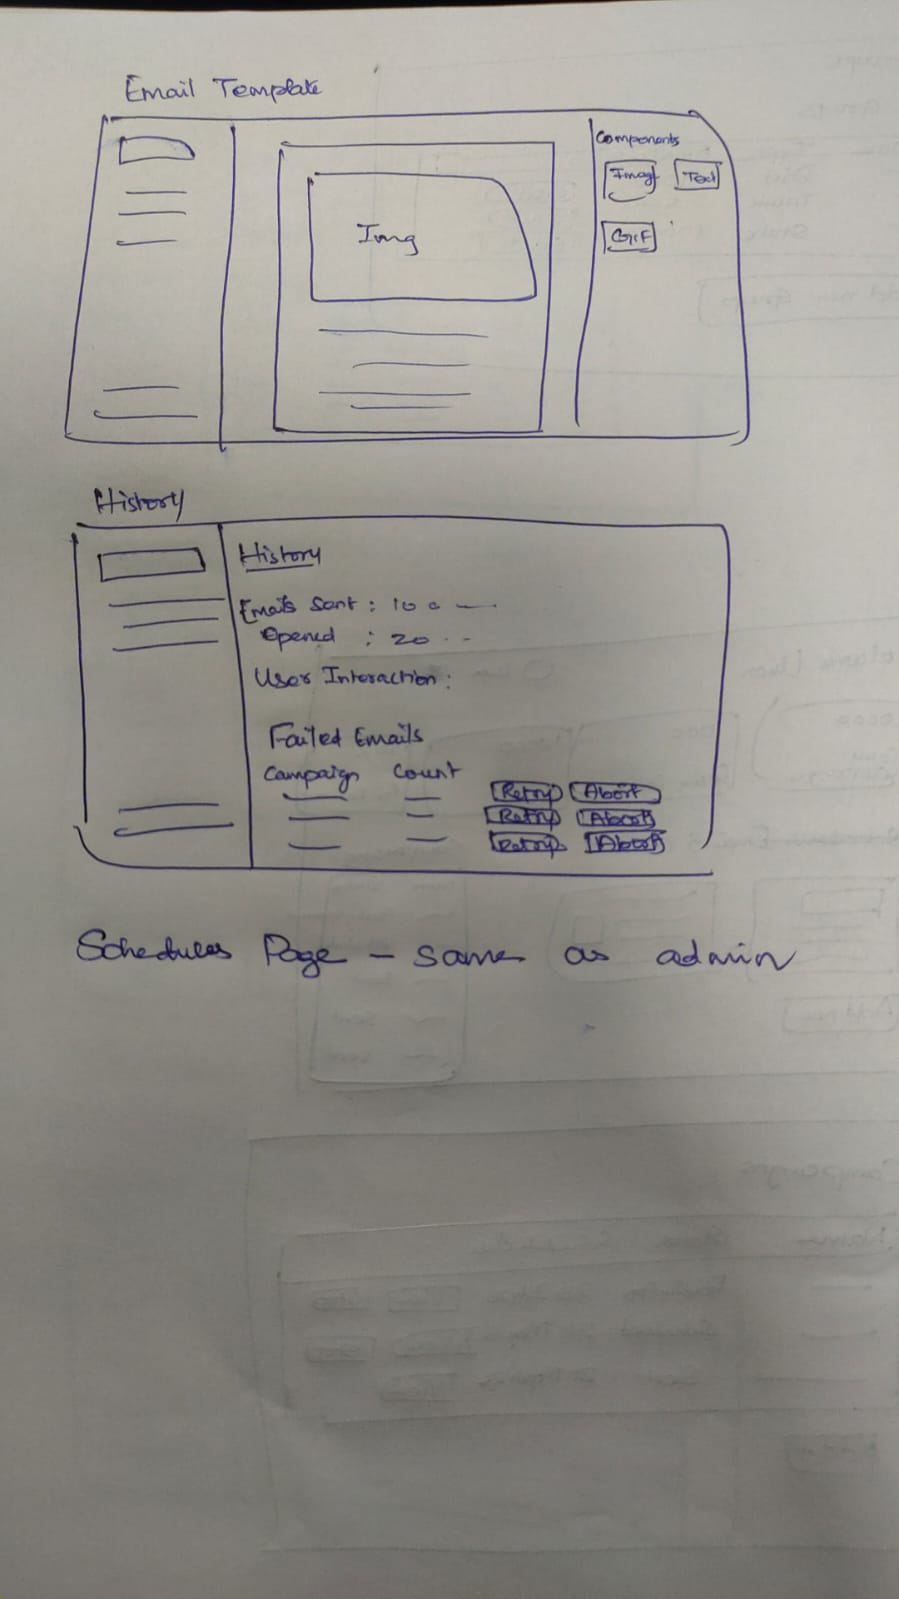 Email Template
Components
Image Text
Img
GIF
History
History
Emails Sent : 100
Opened : 20
User Interaction :
Failed Emails
Campaign Count
Retry Abort
Retry Abort
Retry Abort
Schedules Page - same as admin